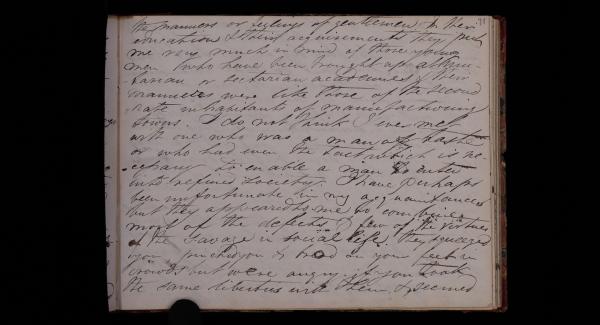 91
the manners or feelings of gentlemen. In their
education & their acquirements they put
me very much in mind of those young
men who have been brought up at Unitarian
tarian or sectarian academies. Their
manners were like those of the second
rate inhabitants of manufacturing
towns. I do not think I ever met
with one who was a man of taste
or who had even the tact which is ne-
cessary to enable a man to enter
into refined society. I have perhaps
been unfortunate in my acquaintances
but they appeared to me to combine
most of the defects & few of the virtues
of the Savage in social life. They squeezed
you, pinched you & trod on your feet in
crowds but were angry if you took
the same liberties with them & seemed